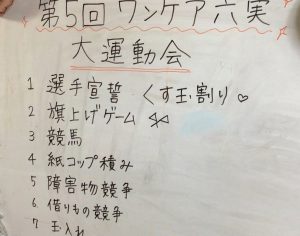 第5回 ワンケア六実
大運動会
1 選手宣誓 くす玉割り♡
2 旗上げゲーム
3 競馬
4 紙コップ積み
5 障害物競争
6 借りもの競争
7 玉入れ